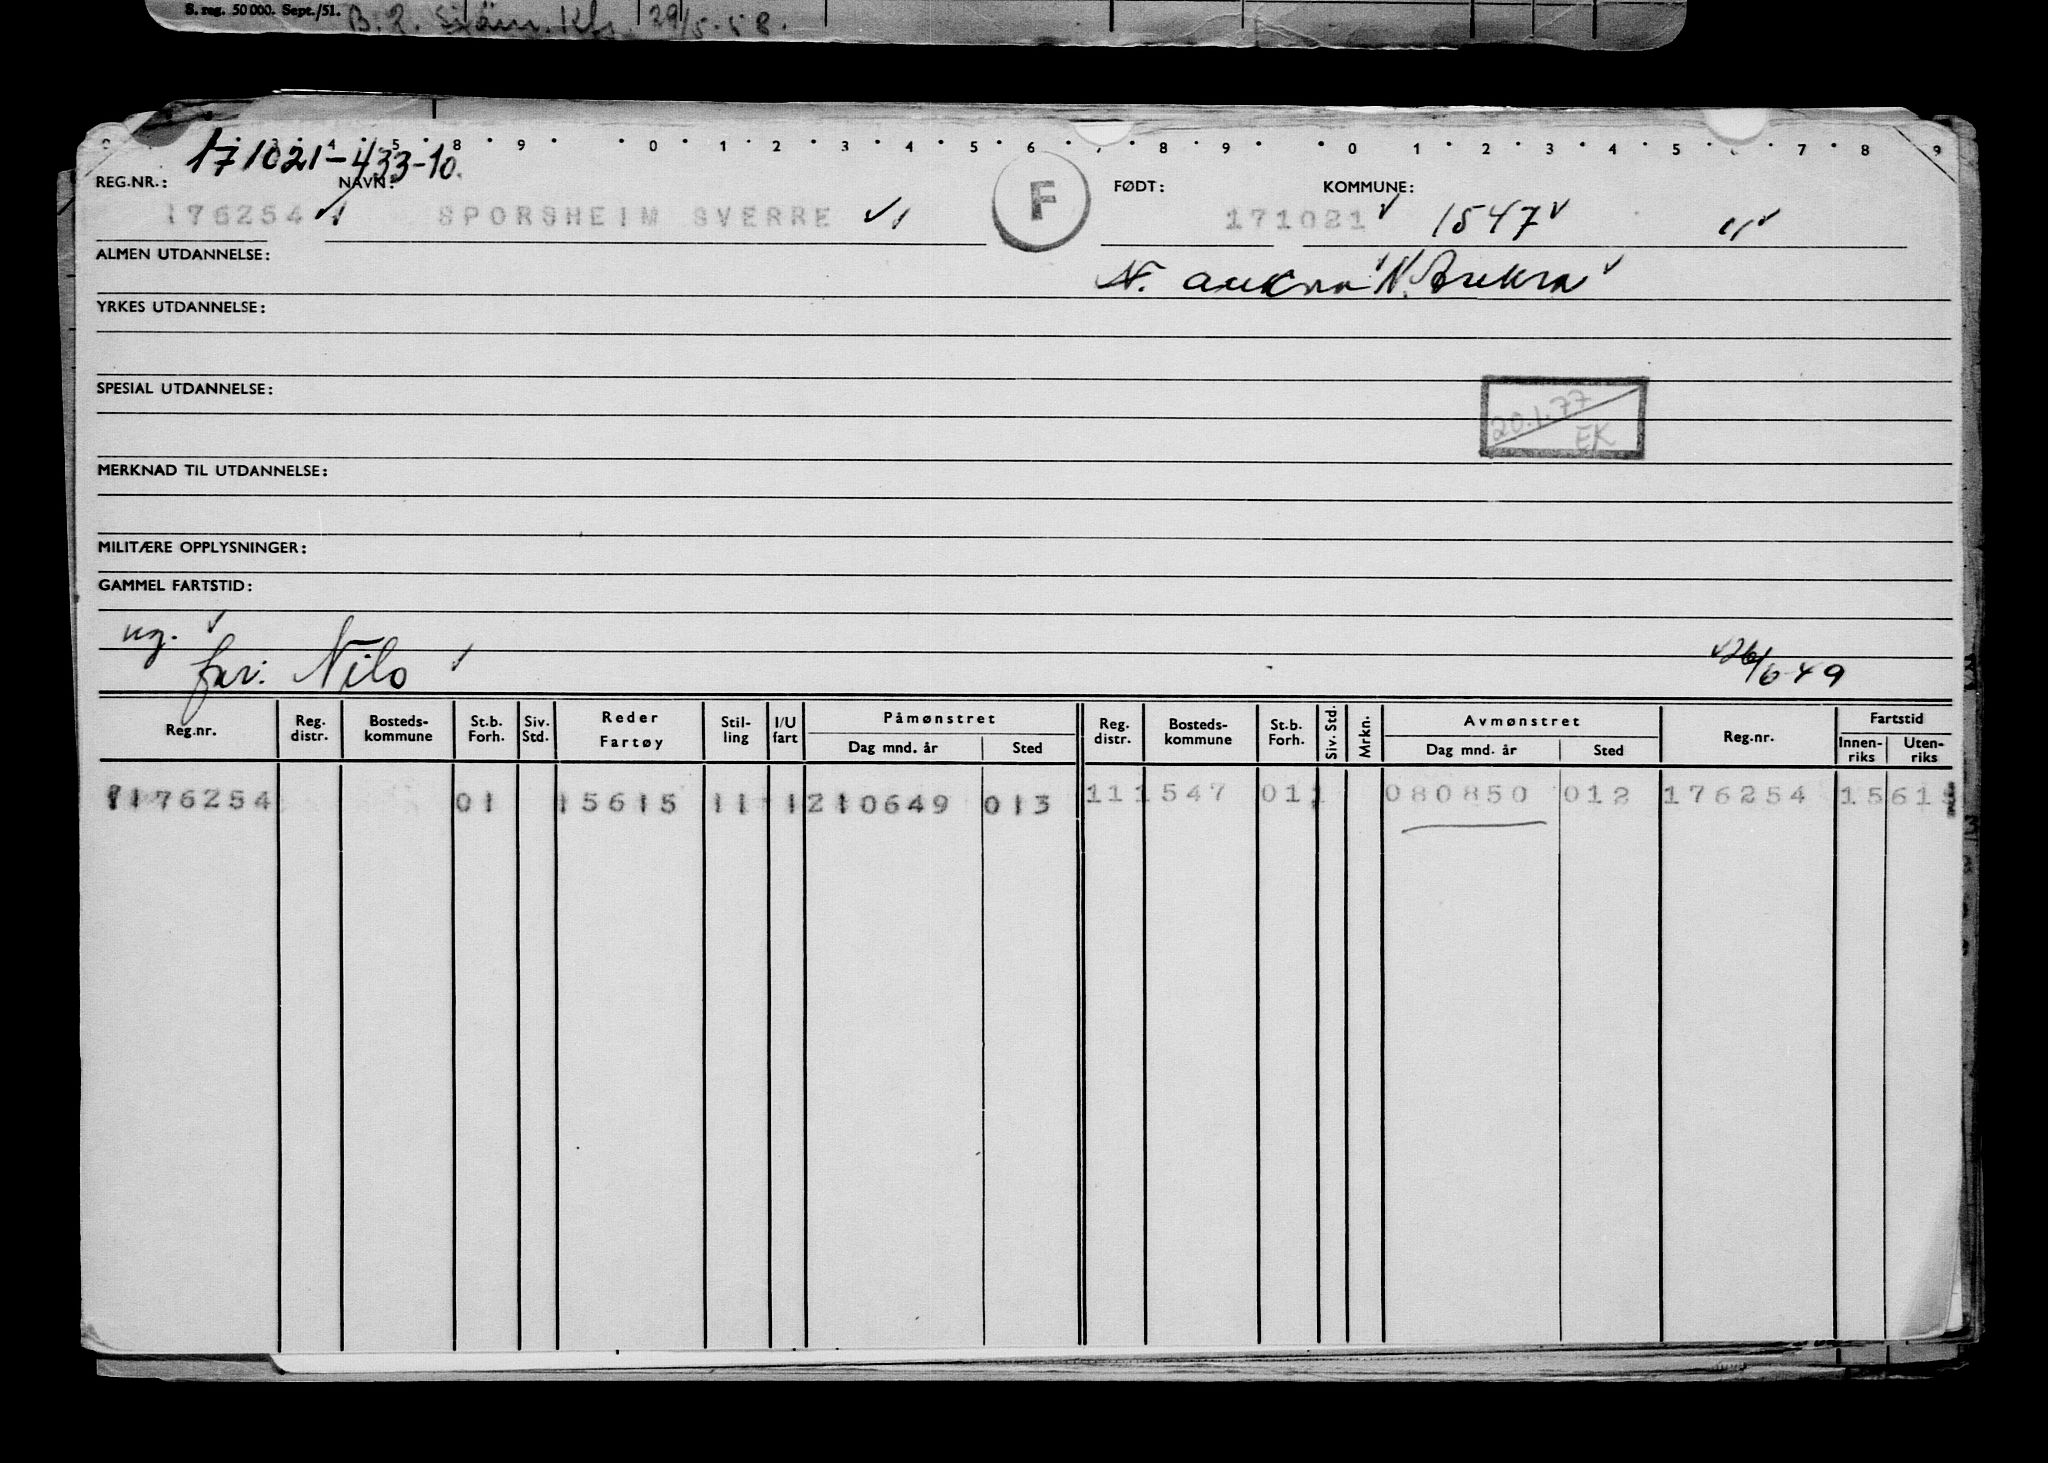 S. reg. 50 000. Sept./51. B. 2. Kfs. 29/5-58.
2 3 4 5 8 9 0 1 2 3 4 5 6 7 8 9 0 1 2 3 4 5 6 7 8 9
171021-433-10.
REG.NR.: NAVN: F FØDT: KOMMUNE:
176254 SPORSHEIM SVERRE 171021 1547 "
ALMEN UTDANNELSE: N. Aukra N. Aukra
YRKES UTDANNELSE:
SPESIAL UTDANNELSE:
20.1.77
EK
MERKNAD TIL UTDANNELSE:
MILITÆRE OPPLYSNINGER:
GAMMEL FARTSTID:
ug.
far: Nils 26/6-49
Reg.nr. Reg. distr. Bosteds-kommune St.b. Forh. Siv. Std. Reder Fartøy Stil-ling I/U fart Påmønstret Dag mnd. år Sted Reg. distr. Bosteds-kommune St.b. Forh. Siv. Std. Mrkn. Avmønstret Dag mnd. år Sted Reg.nr. Fartstid Innen-riks Uten-riks
176254 01 15615 11 1 210649 013 11 1547 011 080850 012 176254 15615